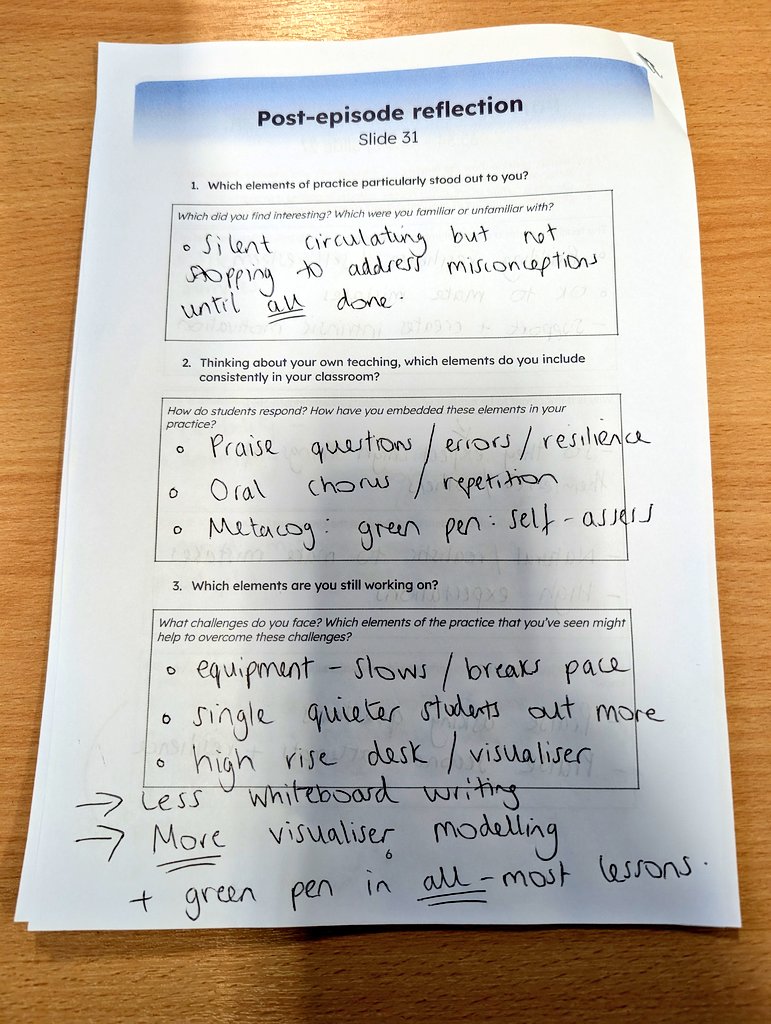 Post-episode reflection
Slide 31
1. Which elements of practice particularly stood out to you?
Which did you find interesting? Which were you familiar or unfamiliar with?
• Silent circulating but not
stopping to address misconceptions
until all done.
2. Thinking about your own teaching, which elements do you include
consistently in your classroom?
How do students respond? How have you embedded these elements in your
practice?
• Praise questions / errors / resilience
• Oral chorus / repetition
• Metacog: green pen: self-assess
3. Which elements are you still working on?
What challenges do you face? Which elements of the practice that you've seen might
help to overcome these challenges?
• equipment - slows / breaks pace
• single quieter students out more
• high rise desk / visualiser
→ Less whiteboard writing
→ More visualiser modelling
+ green pen in all-most lessons.